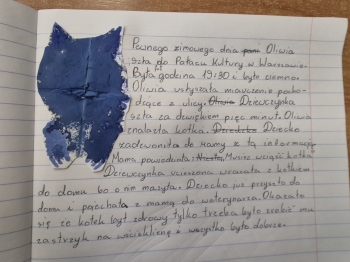 Pewnego zimowego dnia pan Oliwia
szła do Pałacu Kultury w Warszawie.
Była godzina 19:30 i było ciemno.
Oliwia usłyszała miauczenie pocho-
dzące z ulicy. Oliwia Dziewczynka
szła za dźwiękiem pięć minut. Oliwia
znalazła kotka. Dziecko
zadzwoniło do mamy z tą informacją.
Mama powiedziała: Musisz wziąść kotka
Dziewczynka ucieszona wracała z kotkiem
do domu bo o nim marzyła. Dziecko już przyszło do
domu i pojechała z mamą do weterynarza. Okazało
się, że kotek był zdrowy tylko trzeba było zrobić mu
zastrzyk na wściekliznę i wszystko było dobrze.